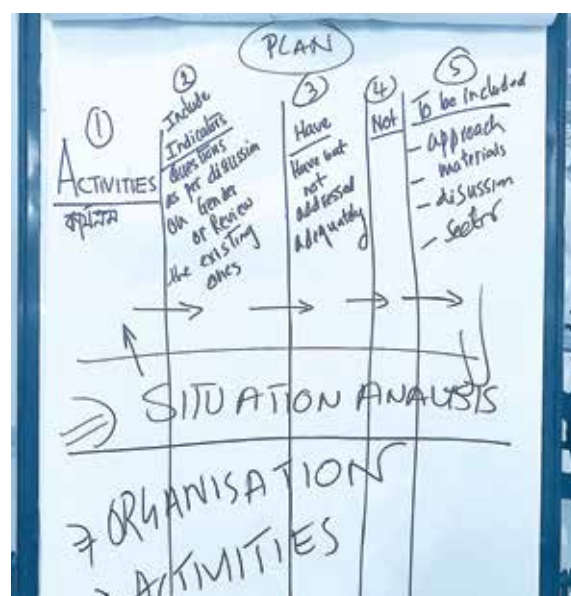 PLAN
①
ACTIVITIES
কার্যক্রম
②
Include
Indicators
Questions
as per disussion
on Gender
or Review
the existing
ones
③
Have
Have but
not
addressed
adequately
④
Not
⑤
To be included
- approach
- materials
- disussion
- Sector
SITUATION ANALYSIS
→ ORGANISATION
→ ACTIVITIES